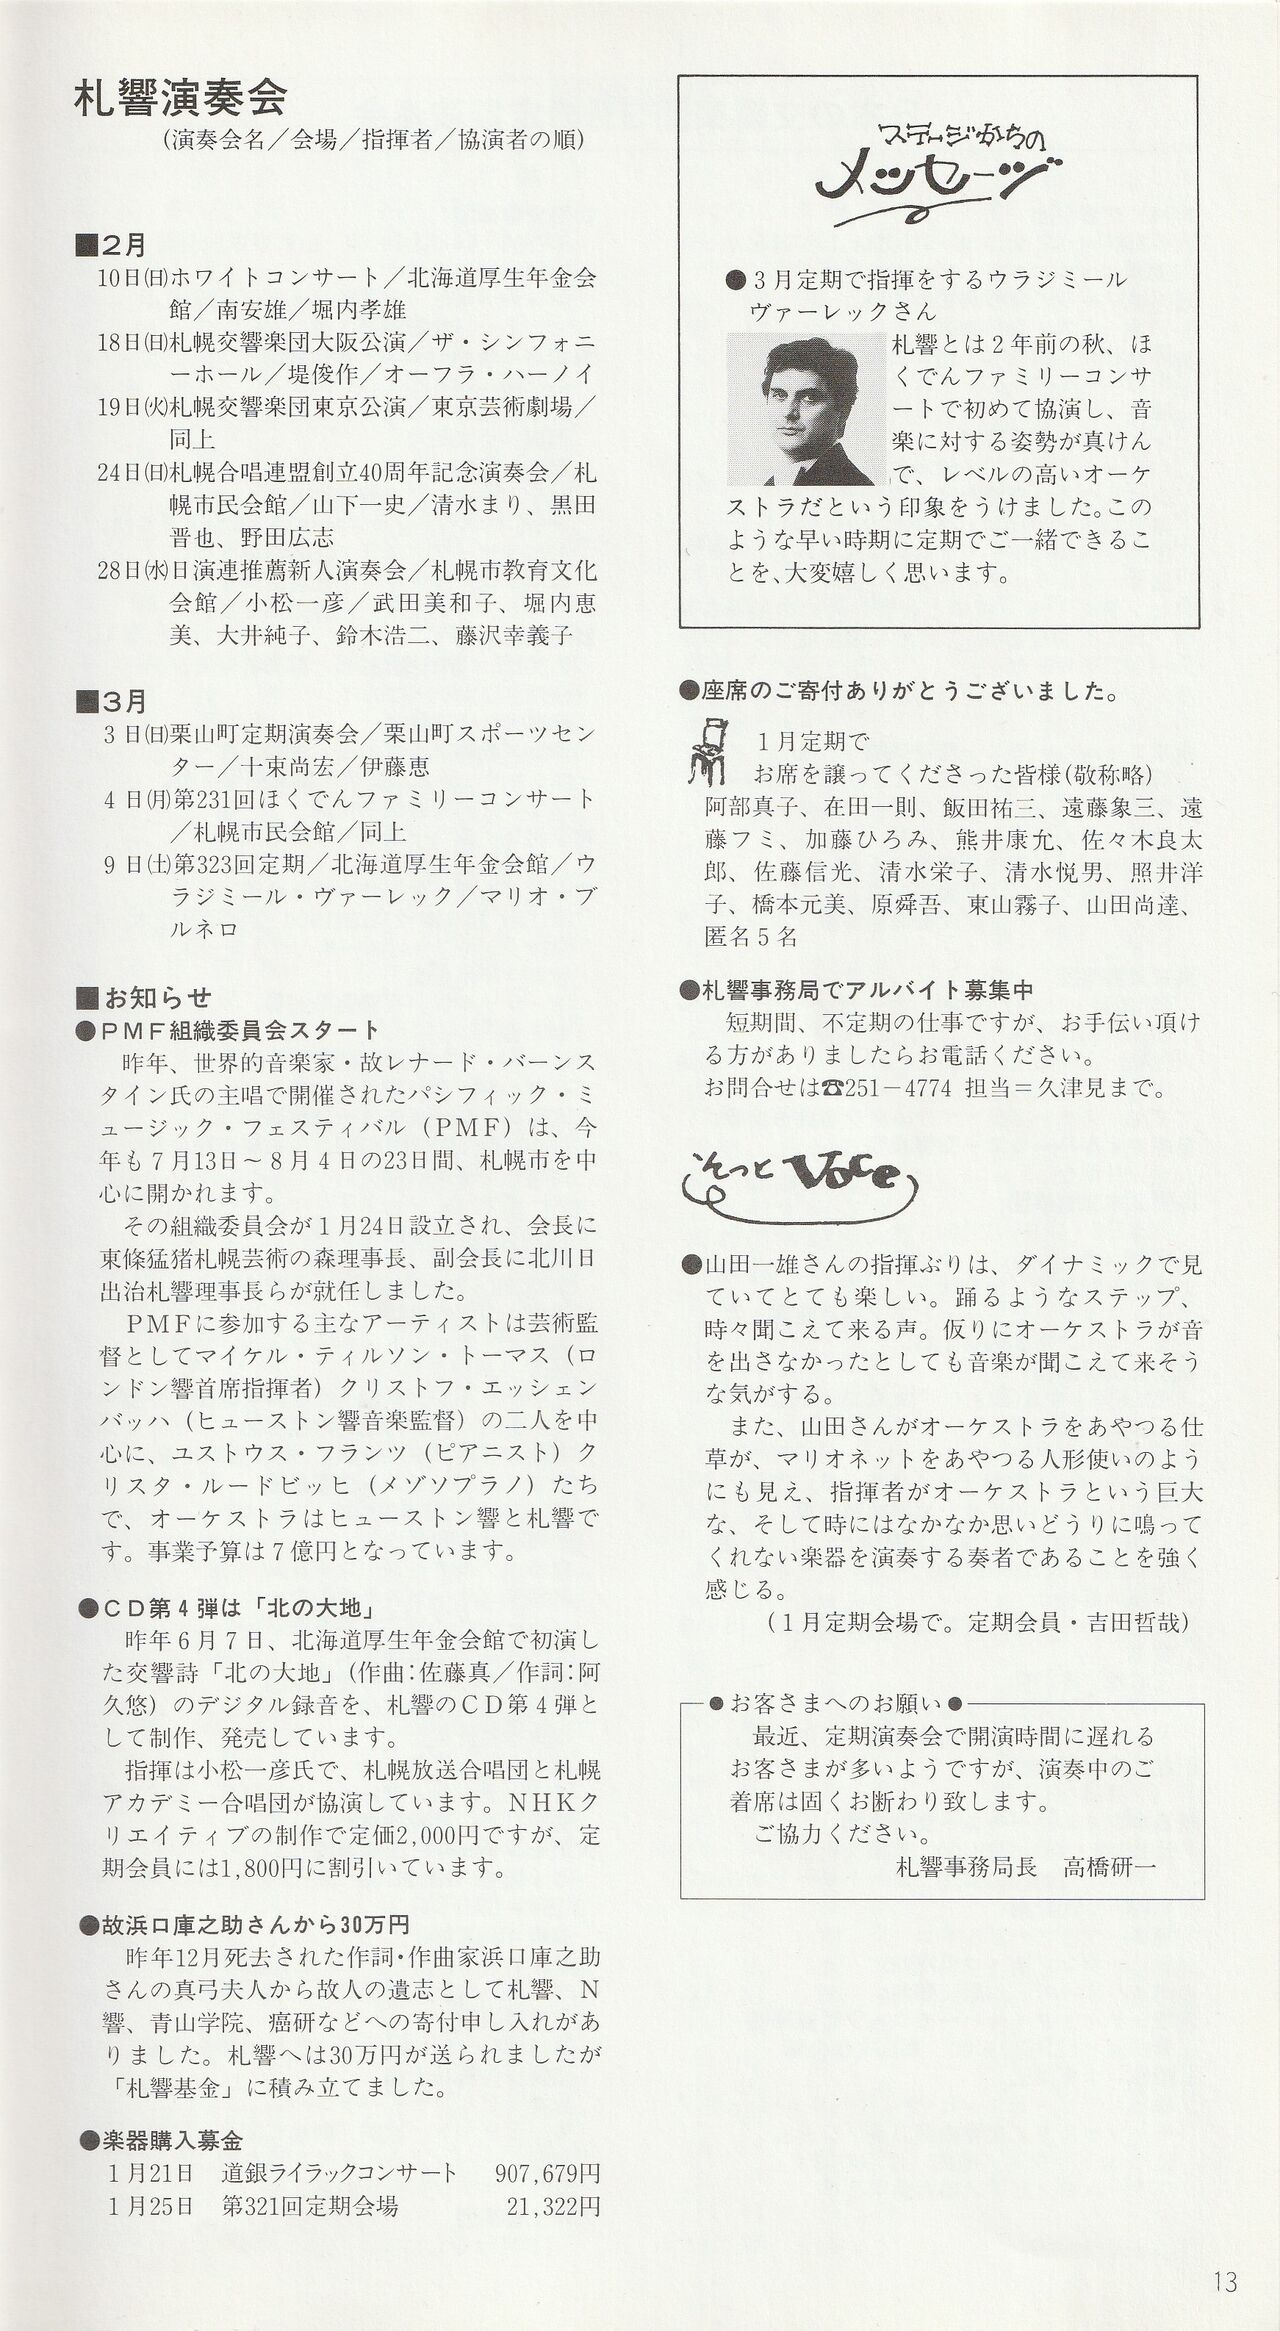 札響演奏会
(演奏会名／会場／指揮者／協演者の順)
■2月
10日(日)ホワイトコンサート／北海道厚生年金会
館／南安雄／堀内孝雄
18日(日)札幌交響楽団大阪公演／ザ・シンフォニ
ーホール／堤俊作／オーフラ・ハーノイ
19日(火)札幌交響楽団東京公演／東京芸術劇場／
同上
24日(日)札幌合唱連盟創立40周年記念演奏会／札
幌市民会館／山下一史／清水まり、黒田
晋也、野田広志
28日(水)日演連推薦新人演奏会／札幌市教育文化
会館／小松一彦／武田美和子、堀内恵
美、大井純子、鈴木浩二、藤沢幸義子
■3月
3日(日)栗山町定期演奏会／栗山町スポーツセン
ター／十束尚宏／伊藤恵
4日(月)第231回ほくでんファミリーコンサート
／札幌市民会館／同上
9日(土)第323回定期／北海道厚生年金会館／ウ
ラジミール・ヴァーレック／マリオ・ブ
ルネロ
■お知らせ
●PMF組織委員会スタート
昨年、世界的音楽家・故レナード・バーンス
タイン氏の主唱で開催されたパシフィック・ミ
ュージック・フェスティバル（PMF）は、今
年も7月13日～8月4日の23日間、札幌市を中
心に開かれます。
その組織委員会が1月24日設立され、会長に
東條猛猪札幌芸術の森理事長、副会長に北川日
出治札響理事長らが就任しました。
PMFに参加する主なアーティストは芸術監
督としてマイケル・ティルソン・トーマス（ロ
ンドン響首席指揮者）クリストフ・エッシェン
バッハ（ヒューストン響音楽監督）の二人を中
心に、ユストウス・フランツ（ピアニスト）ク
リスタ・ルードビッヒ（メゾソプラノ）たち
で、オーケストラはヒューストン響と札響で
す。事業予算は7億円となっています。
●CD第4弾は「北の大地」
昨年6月7日、北海道厚生年金会館で初演し
た交響詩「北の大地」（作曲：佐藤真／作詞：阿
久悠）のデジタル録音を、札響のCD第4弾と
して制作、発売しています。
指揮は小松一彦氏で、札幌放送合唱団と札幌
アカデミー合唱団が協演しています。NHKク
リエイティブの制作で定価2,000円ですが、定
期会員には1,800円に割引いています。
●故浜口庫之助さんから30万円
昨年12月死去された作詞・作曲家浜口庫之助
さんの真弓夫人から故人の遺志として札響、N
響、青山学院、癌研などへの寄付申し入れがあ
りました。札響へは30万円が送られましたが
「札響基金」に積み立てました。
●楽器購入募金
1月21日 道銀ライラックコンサート 907,679円
1月25日 第321回定期会場 21,322円
ステージからの
メッセージ
●3月定期で指揮をするウラジミール
ヴァーレックさん
札響とは2年前の秋、ほ
くでんファミリーコンサ
ートで初めて協演し、音
楽に対する姿勢が真けん
で、レベルの高いオーケ
ストラだという印象をうけました。この
ような早い時期に定期でご一緒できるこ
とを、大変嬉しく思います。
●座席のご寄付ありがとうございました。
1月定期で
お席を譲ってくださった皆様(敬称略)
阿部真子、在田一則、飯田祐三、遠藤象三、遠
藤フミ、加藤ひろみ、熊井康允、佐々木良太
郎、佐藤信光、清水栄子、清水悦男、照井洋
子、橋本元美、原舜吾、東山霧子、山田尚達、
匿名5名
●札響事務局でアルバイト募集中
短期間、不定期の仕事ですが、お手伝い頂け
る方がありましたらお電話ください。
お問合せは☎251－4774 担当＝久津見まで。
そっと Voce
●山田一雄さんの指揮ぶりは、ダイナミックで見
ていてとても楽しい。踊るようなステップ、
時々聞こえて来る声。仮りにオーケストラが音
を出さなかったとしても音楽が聞こえて来そう
な気がする。
また、山田さんがオーケストラをあやつる仕
草が、マリオネットをあやつる人形使いのよう
にも見え、指揮者がオーケストラという巨大
な、そして時にはなかなか思いどうりに鳴って
くれない楽器を演奏する奏者であることを強く
感じる。
（1月定期会場で。定期会員・吉田哲哉）
●お客さまへのお願い●
最近、定期演奏会で開演時間に遅れる
お客さまが多いようですが、演奏中のご
着席は固くお断わり致します。
ご協力ください。
札響事務局長 高橋研一
13